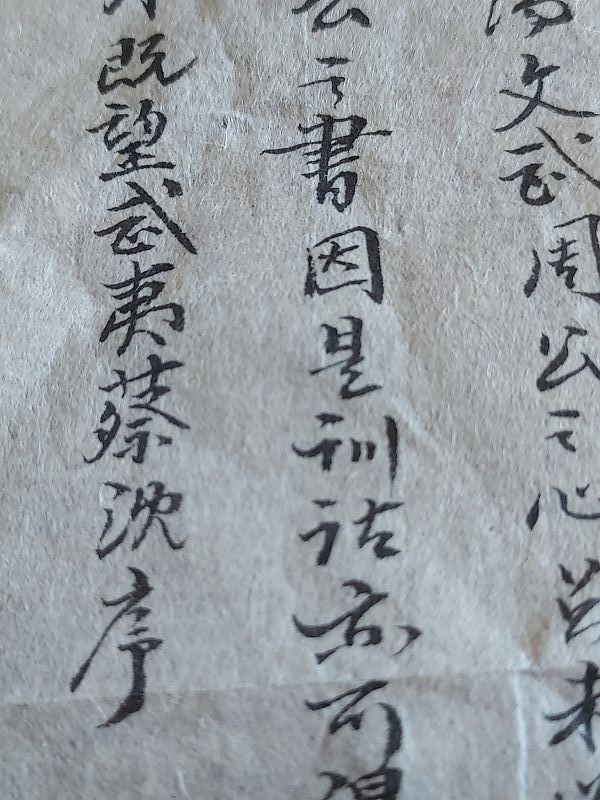 湯文武周公之心雖未
公之書因是訓詁亦可得
既望武夷蔡沈序